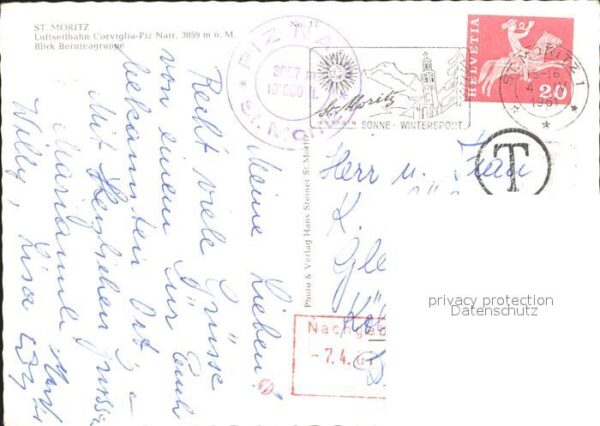 ST. MORITZ
Luftseilbahn Corviglia-Piz Nair, 3059 m ü. M.
Blick Berninagruppe
No. 12
PIZ NAIR
ST. MORITZ
St. Moritz
SONNE - WINTERSPORT
HELVETIA
20
ST. MORITZ 1
15-16
1961
T
Photo & Verlag Hans Steiner St. Moritz
Meine Lieben!
Recht viele Grüsse
von einem für Euch
bekannten Ort
Mit Herzlichen Grüssen
Marianne
Willy, Lisa
Herr u. Frau
K.
Nachgeb
-7.4.61
privacy protection
Datenschutz